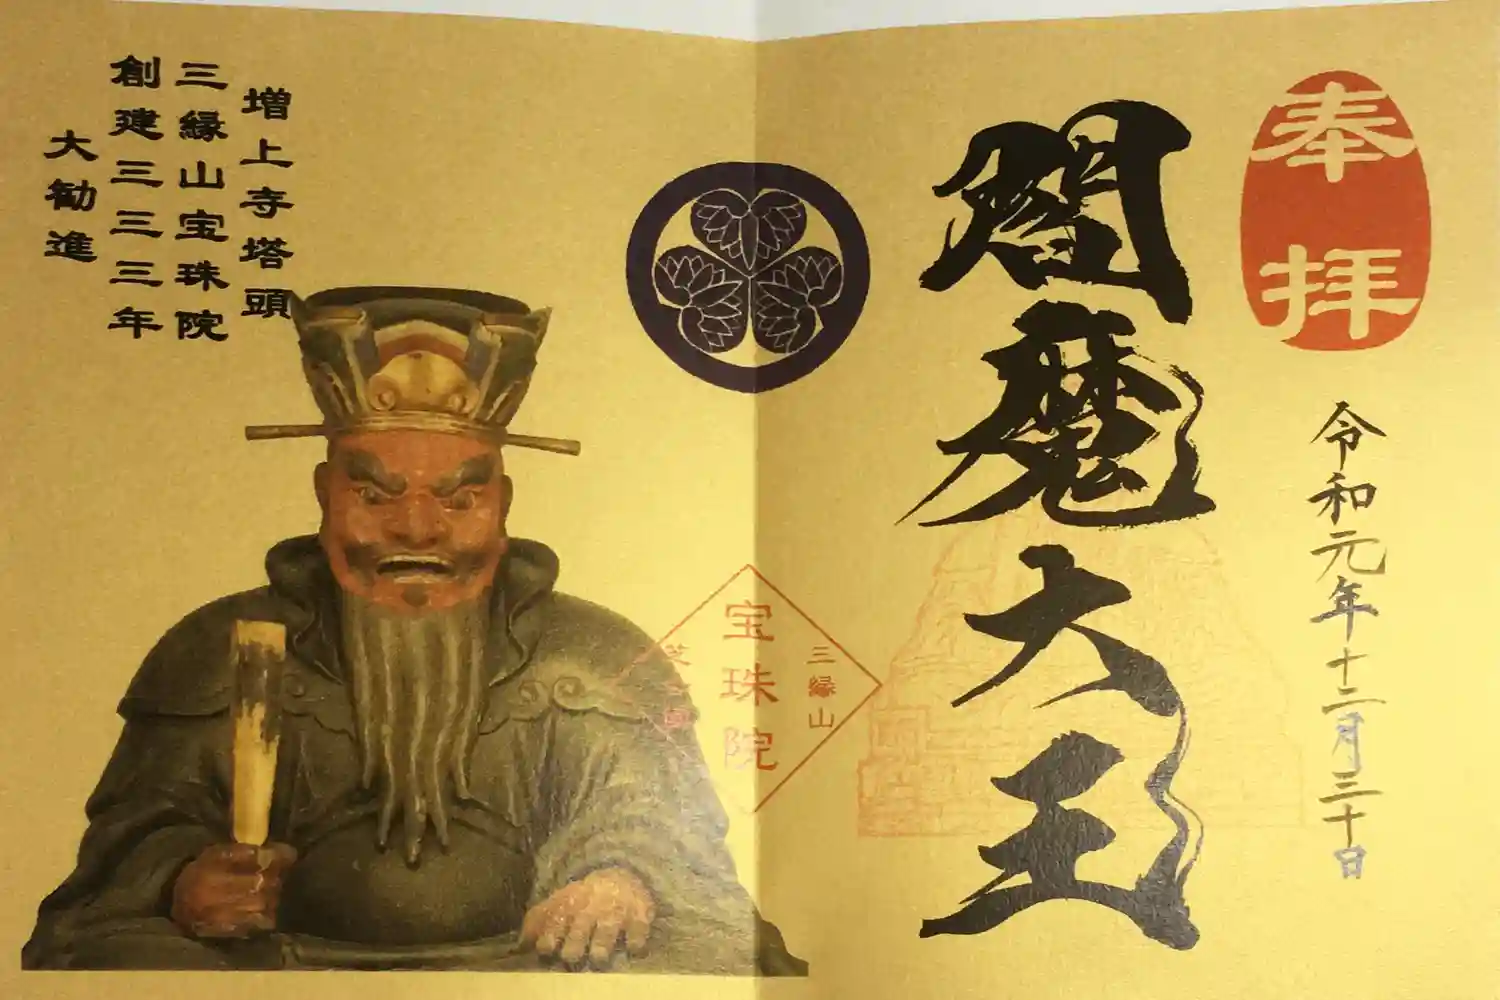 奉拝
令和元年十二月三十日
閻魔大王
三縁山
宝珠院
増上寺塔頭
三縁山宝珠院
創建三三三年
大勧進